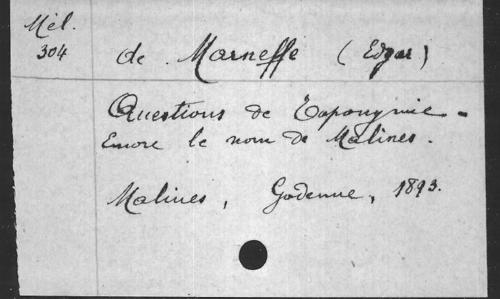 Mél.
304
de Marneffe (Edgar)
Questions de Toponymie -
Encore le nom de Malines.
Malines, Godenne, 1893.